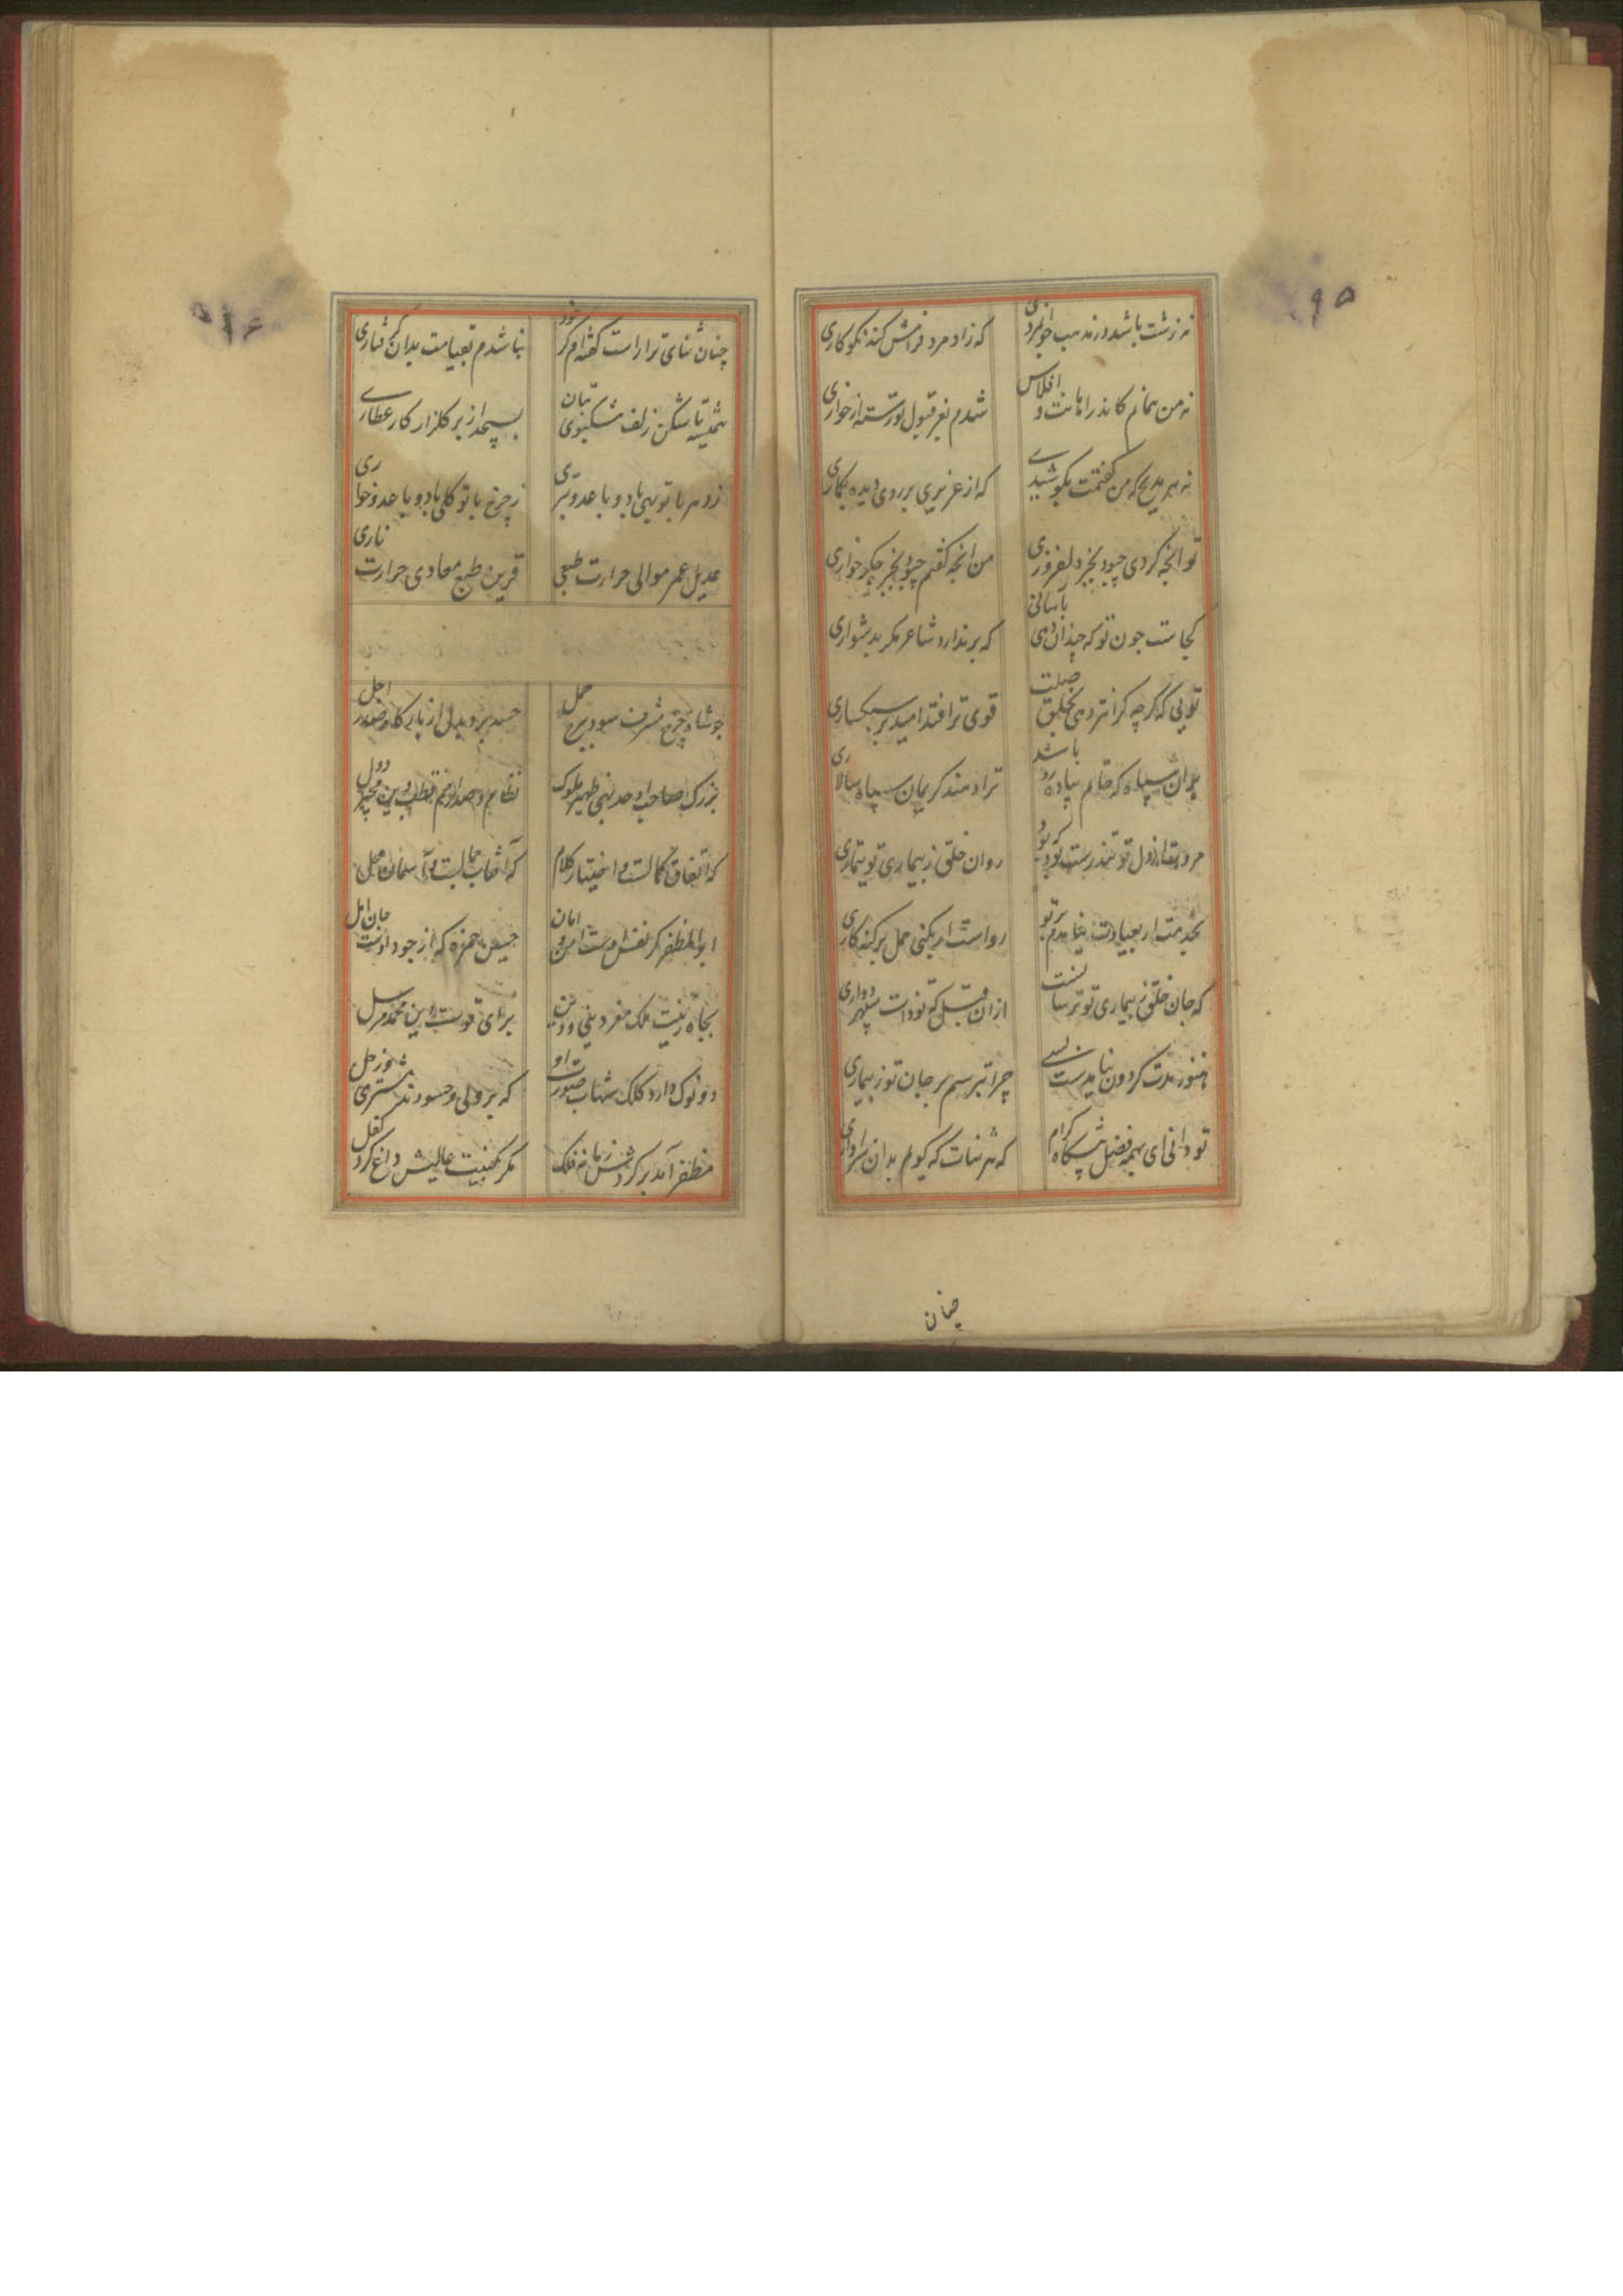 نه زشت باشد در مذهب جوانمردی
که زاد مرد فرامش کند نکوکاری
نه من همانم کاندر اهانت و افلاس
شدم بفر قبول تو رسته از خواری
نه هر مدیح که من گفتمت بکوشیدی
که از عزیزی بر روی دیده بنگاری
تو انچه کردی چبود بجز دلفروزی
من انچه گفتم چبود بجز جگر خواری
کجاست چون تو که چندان دهی بآسانی
که برندارد شاعر مگر بدشواری
تویی که گرچه گرانتر دهی بخلق صلت
قوی ترا فتد امید بر سبکساری
بدان سپاه که حاتم پیاده رو باشد
ترا دهند کریمان سپاه سالاری
مروتها ز دل تو تندرست بود که بود
روان خلق ز بیماری تو تیماری
بخدمت ار بعیادت نیامدم بر تو
رواست ار نکنی حمل بر گنه کاری
که جان خلق ز بیماری تو ترسانست
از ان قبل که تو ذات سپهر دواری
هنوز مدت گردون بنامدست بسی
چرا بترسم بر جان تو ز بیماری
تو دانی ای بهمه فضل پیشگاه کرام
که هر ثنات که گویم بدان سزاواری
چنان
چنان ثنای ترا راست گفته ام که خود
نباشدم بقیامت بدان گرفتاری
همیشه تا شکن زلف مشکبوی بتان
بسیجد از بر گلزار کار عطاری
ز دهر با تو بهی باد و با عدو بتری
ز چرخ با تو گلی باد و با عدو خواری
عدیل عمر موالی حرارت طبعی
قرین طبع معادی حرارت ناری
چو شاه چرخ مشرف شود ببرج حمل
حسد برد بدلی از بارگاه صدر اجل
بزرگ صاحب اوحد بهی ظهیر ملوک
نظام و صدر امم قطب دین مجیر دول
که اتفاق کمالست و اختیار کلام
که آفتاب جمالست و آسمان محل
ابوالمظفر کز لفظ اوست امن و امان
حسین حمزه که از جود اوست جان امل
بجاه زینت ملک مغز دینی و دین
برای قوت دین محمد مرسل
دو نوک دارد کلک شهاب صورت او
که بر ولی و حسودند مشتری و زحل
مظفر آمد بر گردش زمانه فلک
مگر بکنیت عالیش داغ کرد کفل